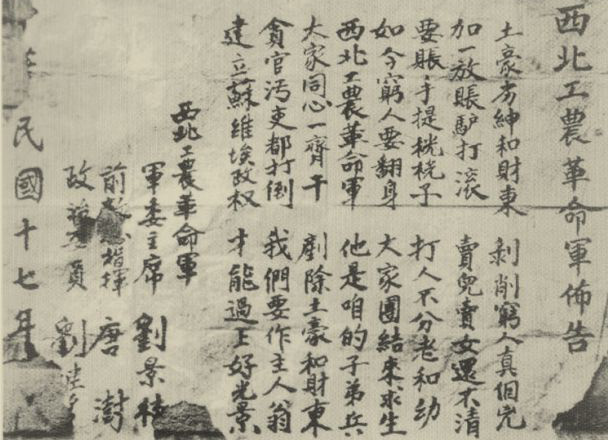 西北工農革命軍佈告
土豪劣紳和財東 剝削窮人真個兇
加一放賬驴打滾 賣兒賣女還不清
要賬手提桄桄子 打人不分老和幼
如今窮人要翻身 大家團結來求生
西北工農革命軍 他是咱的子弟兵
大家同心一齊干 剷除土豪和財東
貪官污吏都打倒 我們要作主人翁
建立蘇維埃政权 才能過上好光景
西北工農革命軍
軍委主席 劉景桂
前 指揮 唐澍
政 員 劉
民國十七年